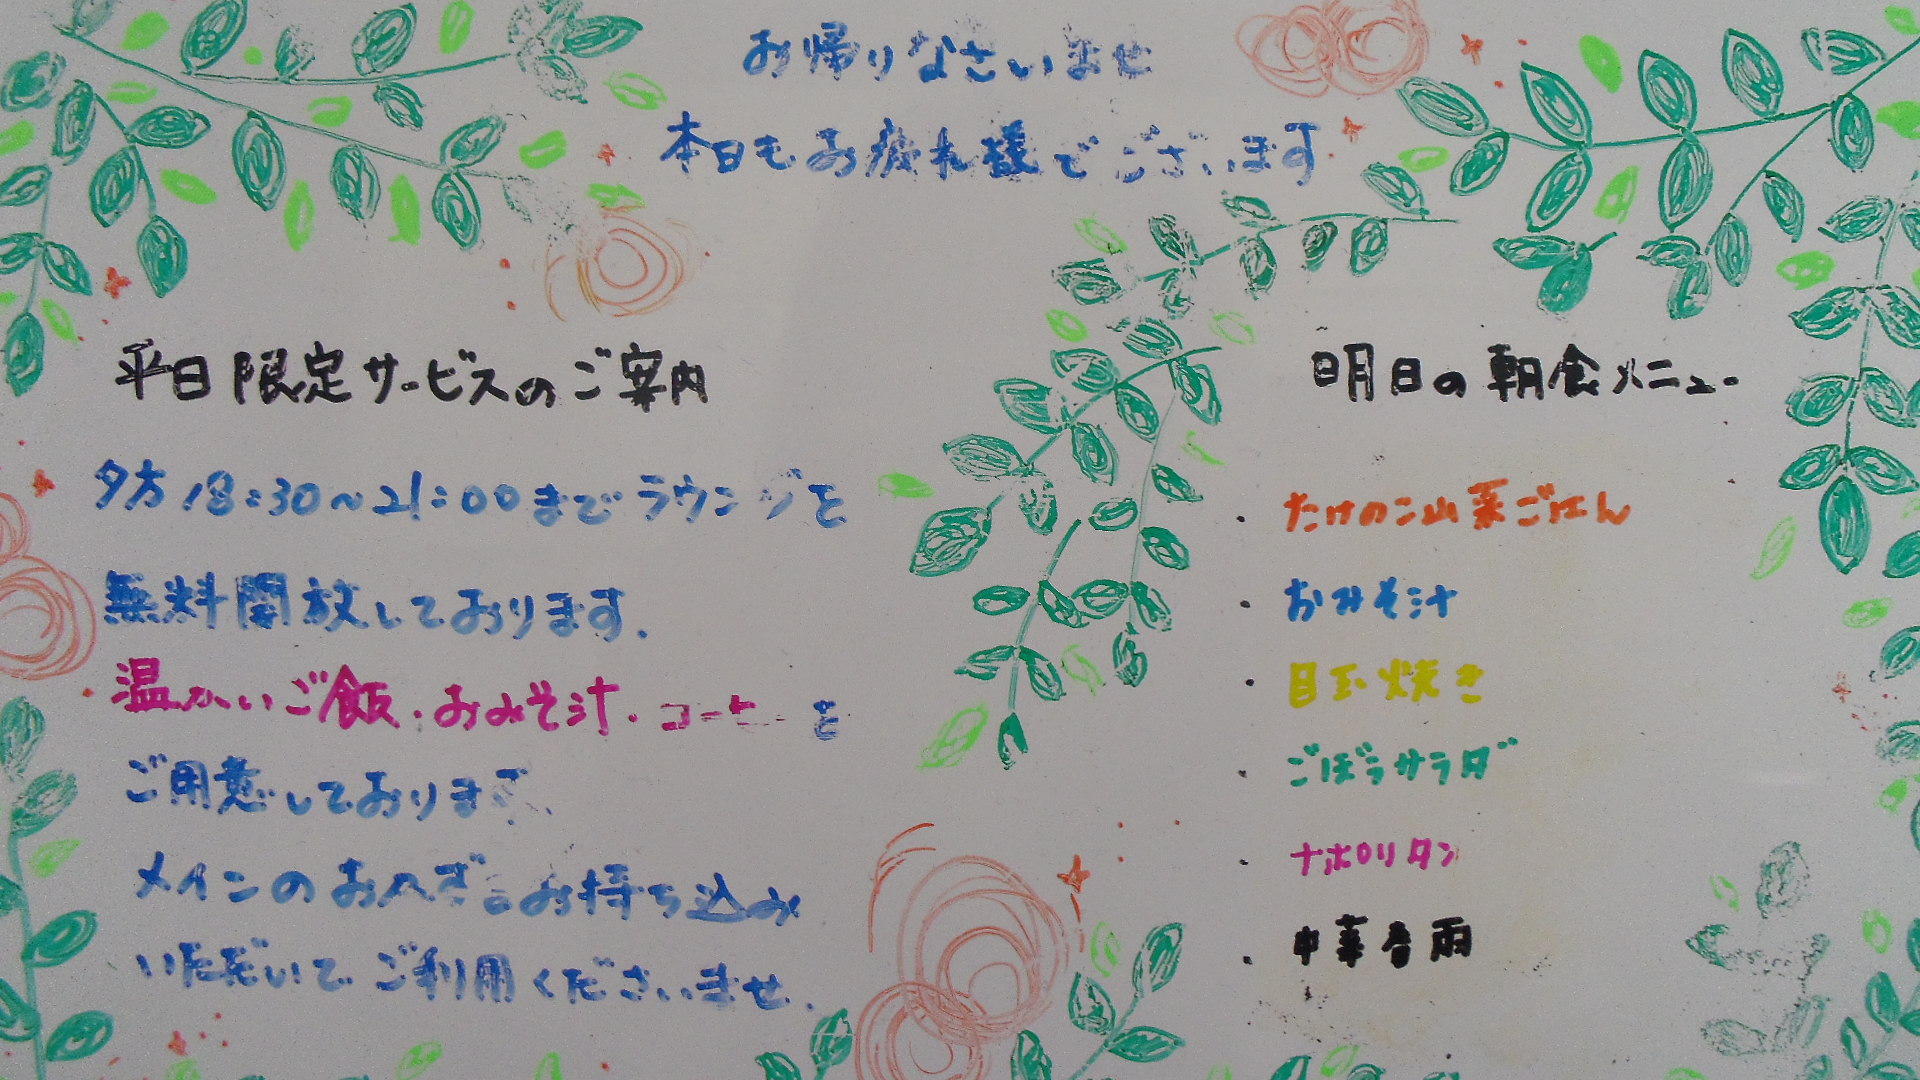 お帰りなさいませ
本日もお疲れ様でございます
平日限定サービスのご案内
夕方18:30~21:00までラウンジを
無料開放しております.
温かいご飯・おみそ汁・コーヒーを
ご用意しております.
メインのおかずをお持ち込み
いただいてご利用くださいませ.
明日の朝食メニュー
・たけのこ山菜ごはん
・おみそ汁
・目玉焼き
・ごぼうサラダ
・ナポリタン
・中華春雨